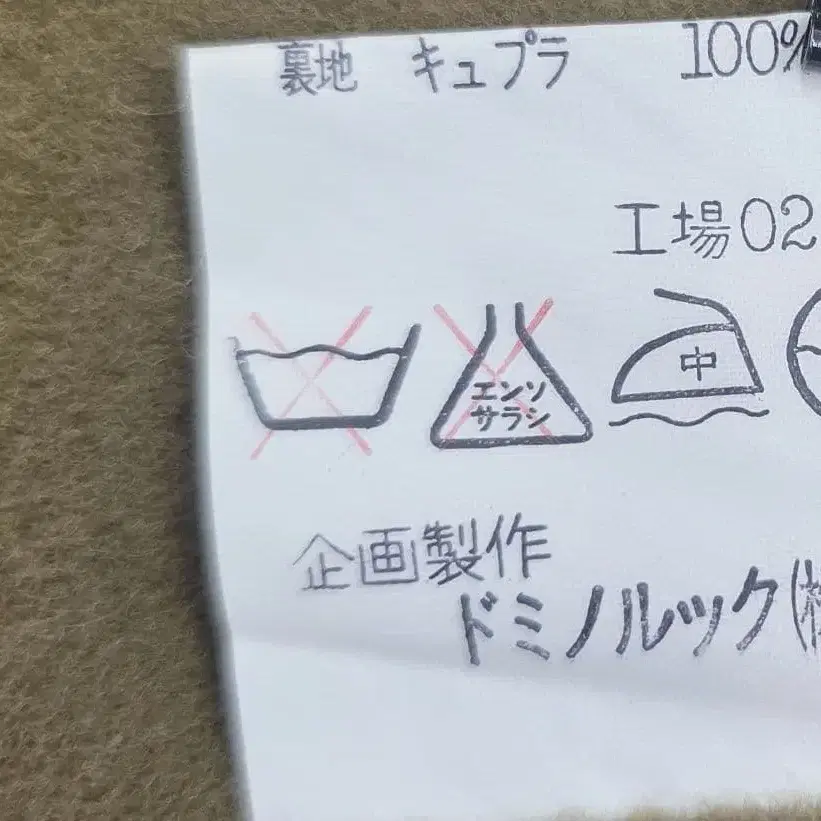 裏地 キュプラ 100%
工場02
エンソ
サラシ
中
企画製作
ドミノルック(株